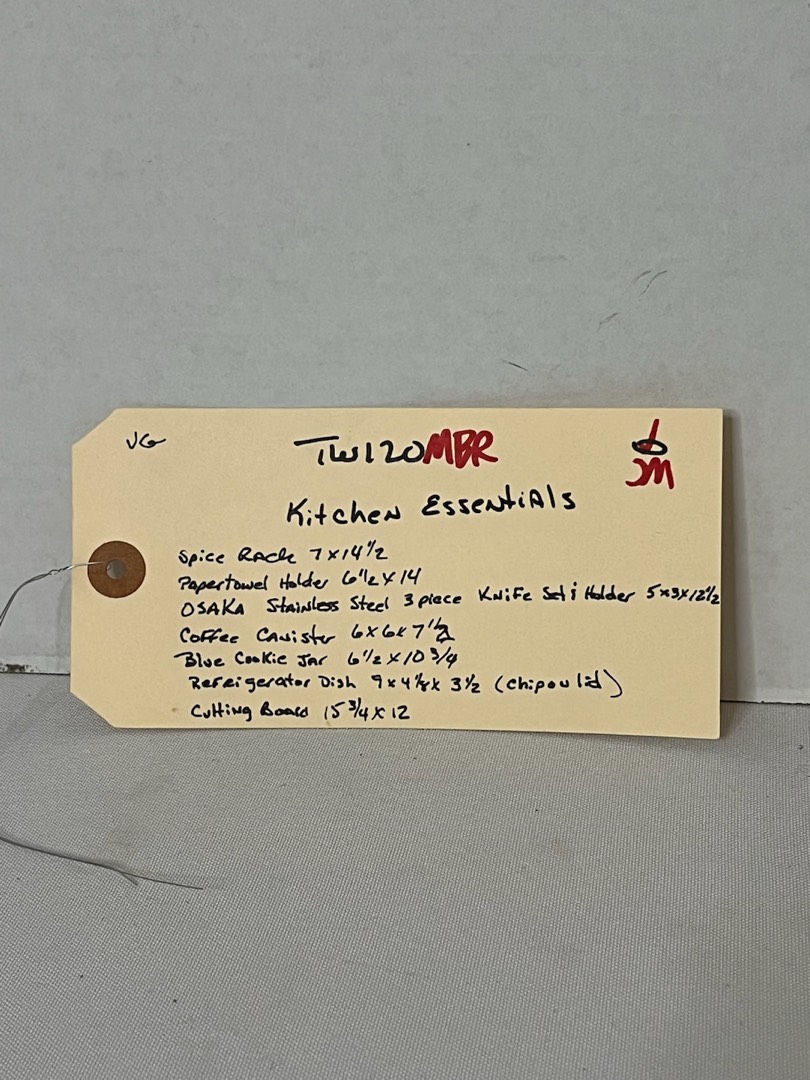 VG
TW120MBR
JM
Kitchen Essentials
Spice Rack 7x14 1/2
Papertowel Holder 6 1/2 x 14
OSAKA Stainless Steel 3 piece Knife Set i Holder 5x3x12 1/2
Coffee Canister 6x6x7 1/2
Blue Cookie Jar 6 1/2 x 10 3/4
Refrigerator Dish 9 x 4 1/8 x 3 1/2 (chip on lid)
Cutting Board 15 3/4 x 12